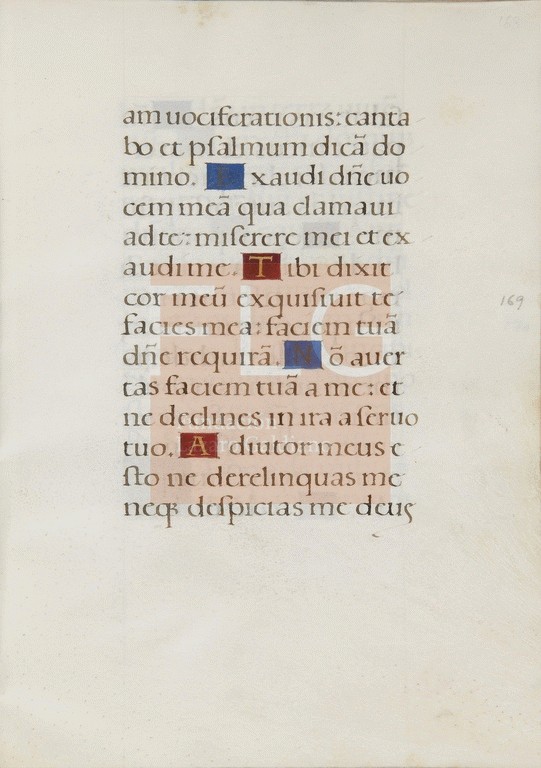 am uociferationis: canta
bo et psalmum dicã do
mino. Exaudi dñe uo
cem meã qua clamaui
ad te: miserere mei et ex
audi me. Tibi dixit
cor meũ exquisiuit te
facies mea: faciem tuã
dñe requirã. Nõ auer
tas faciem tuã a me: et
ne declines in ira a seruo
tuo. Adiutor meus e
sto ne derelinquas me
neqꝫ despicias me deus
169